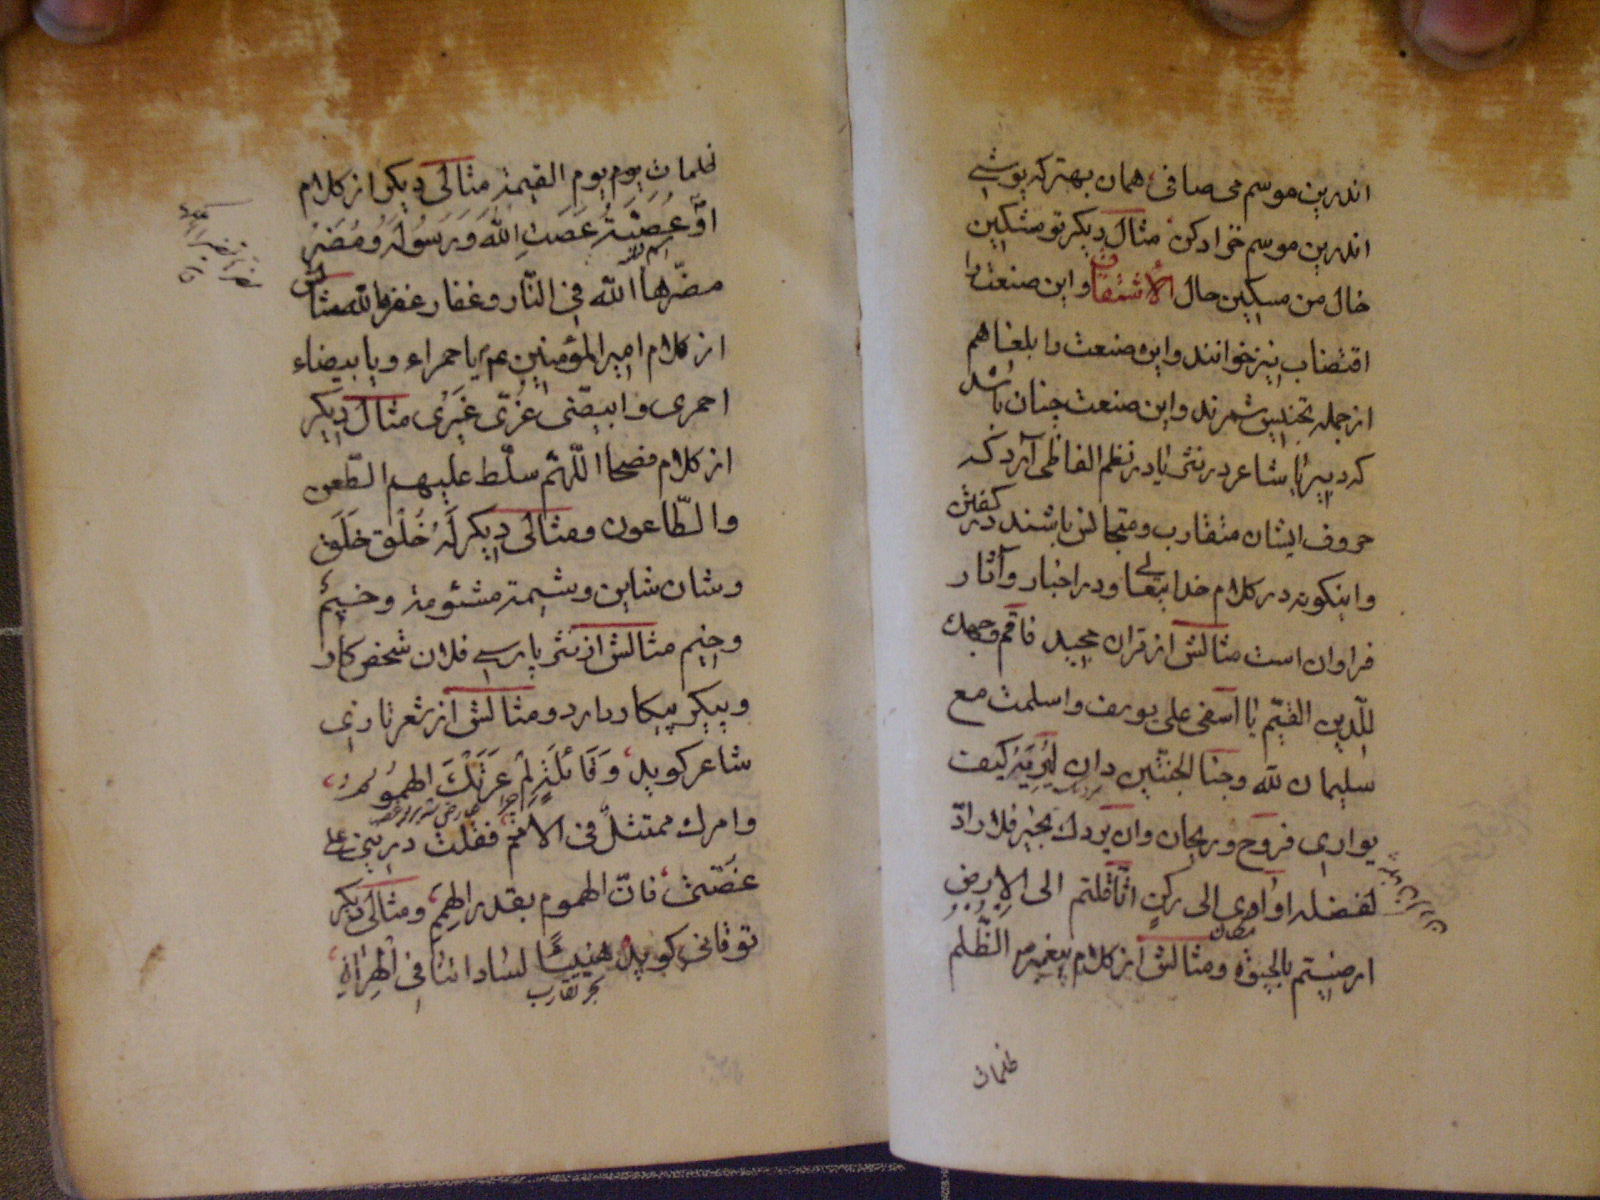 اندرین موسم می صافی همان بهتر که پوشی
اندرین موسم خزاد کن مثال دیکر تو مشکین
خال من مسکین حال الاشتقاق و این صنعت را
اقتضاب نیز خوانند و این صنعت را بلغا هم
از جمله تجنیس شمرند و این صنعت چنان باشد
که دبیر یا شاعر در نثر یا در نظم الفاظی آرد که
حروف ایشان متقارب و متجانس باشند در کفتن
و اینکونه در کلام خدایتعالی و در اخبار و آثار
فراوان است مثالش از قران مجید فاقم وجهک
للدین القیم یا اسفی علی یوسف و اسلمت مع
سلیمان لله و جنا الجنتین دان لیریه کیف
یواری فروح و ریحان وان یردک بخیر فلا رادّ
لفضله او اوی الی رکن اثّاقلتم الی الارض
ارضیتم بالحیوة و مثالش از کلام پیغمبر ص الظّلم
ظلمات
ظلمات یوم یوم القیمة مثالی دیکر از کلام
او عُصَیَّة عَصَتِ اللّٰه وَرَسُولَهُ وَمُضَرُ
مضّرها اللّٰه فی النّار و غفار غفر الله مثالش
از کلام امیر المؤمنین ع م یا حمراء و یا بیضاء
احمری و ابیضّی غُرّی غَیری مثال دیکر
از کلام فصحا اللّهم سلّط علیهم الطّعن
والطّاعون و مثالی دیکر لَهُ خُلق خَلَق
و شان شاین و شیمة مشئومة و خیم
وخیم مثالش از نثر پارسی فلان شخص کار
و پیکر بیکار دارد و مثالش از شعر تازی
شاعر کوید وَقَائلةٍ لِمْ عَرَتْكَ الهمُومُ
وامرك ممتثلٌ فی الامم فقلت ذرینی علی
غصّتی فانّ الهموم بقدر الهِمَم و مثالی دیکر
توقانی کوید هنیئًا لساداتنا فی الهراة
بحر تقارب